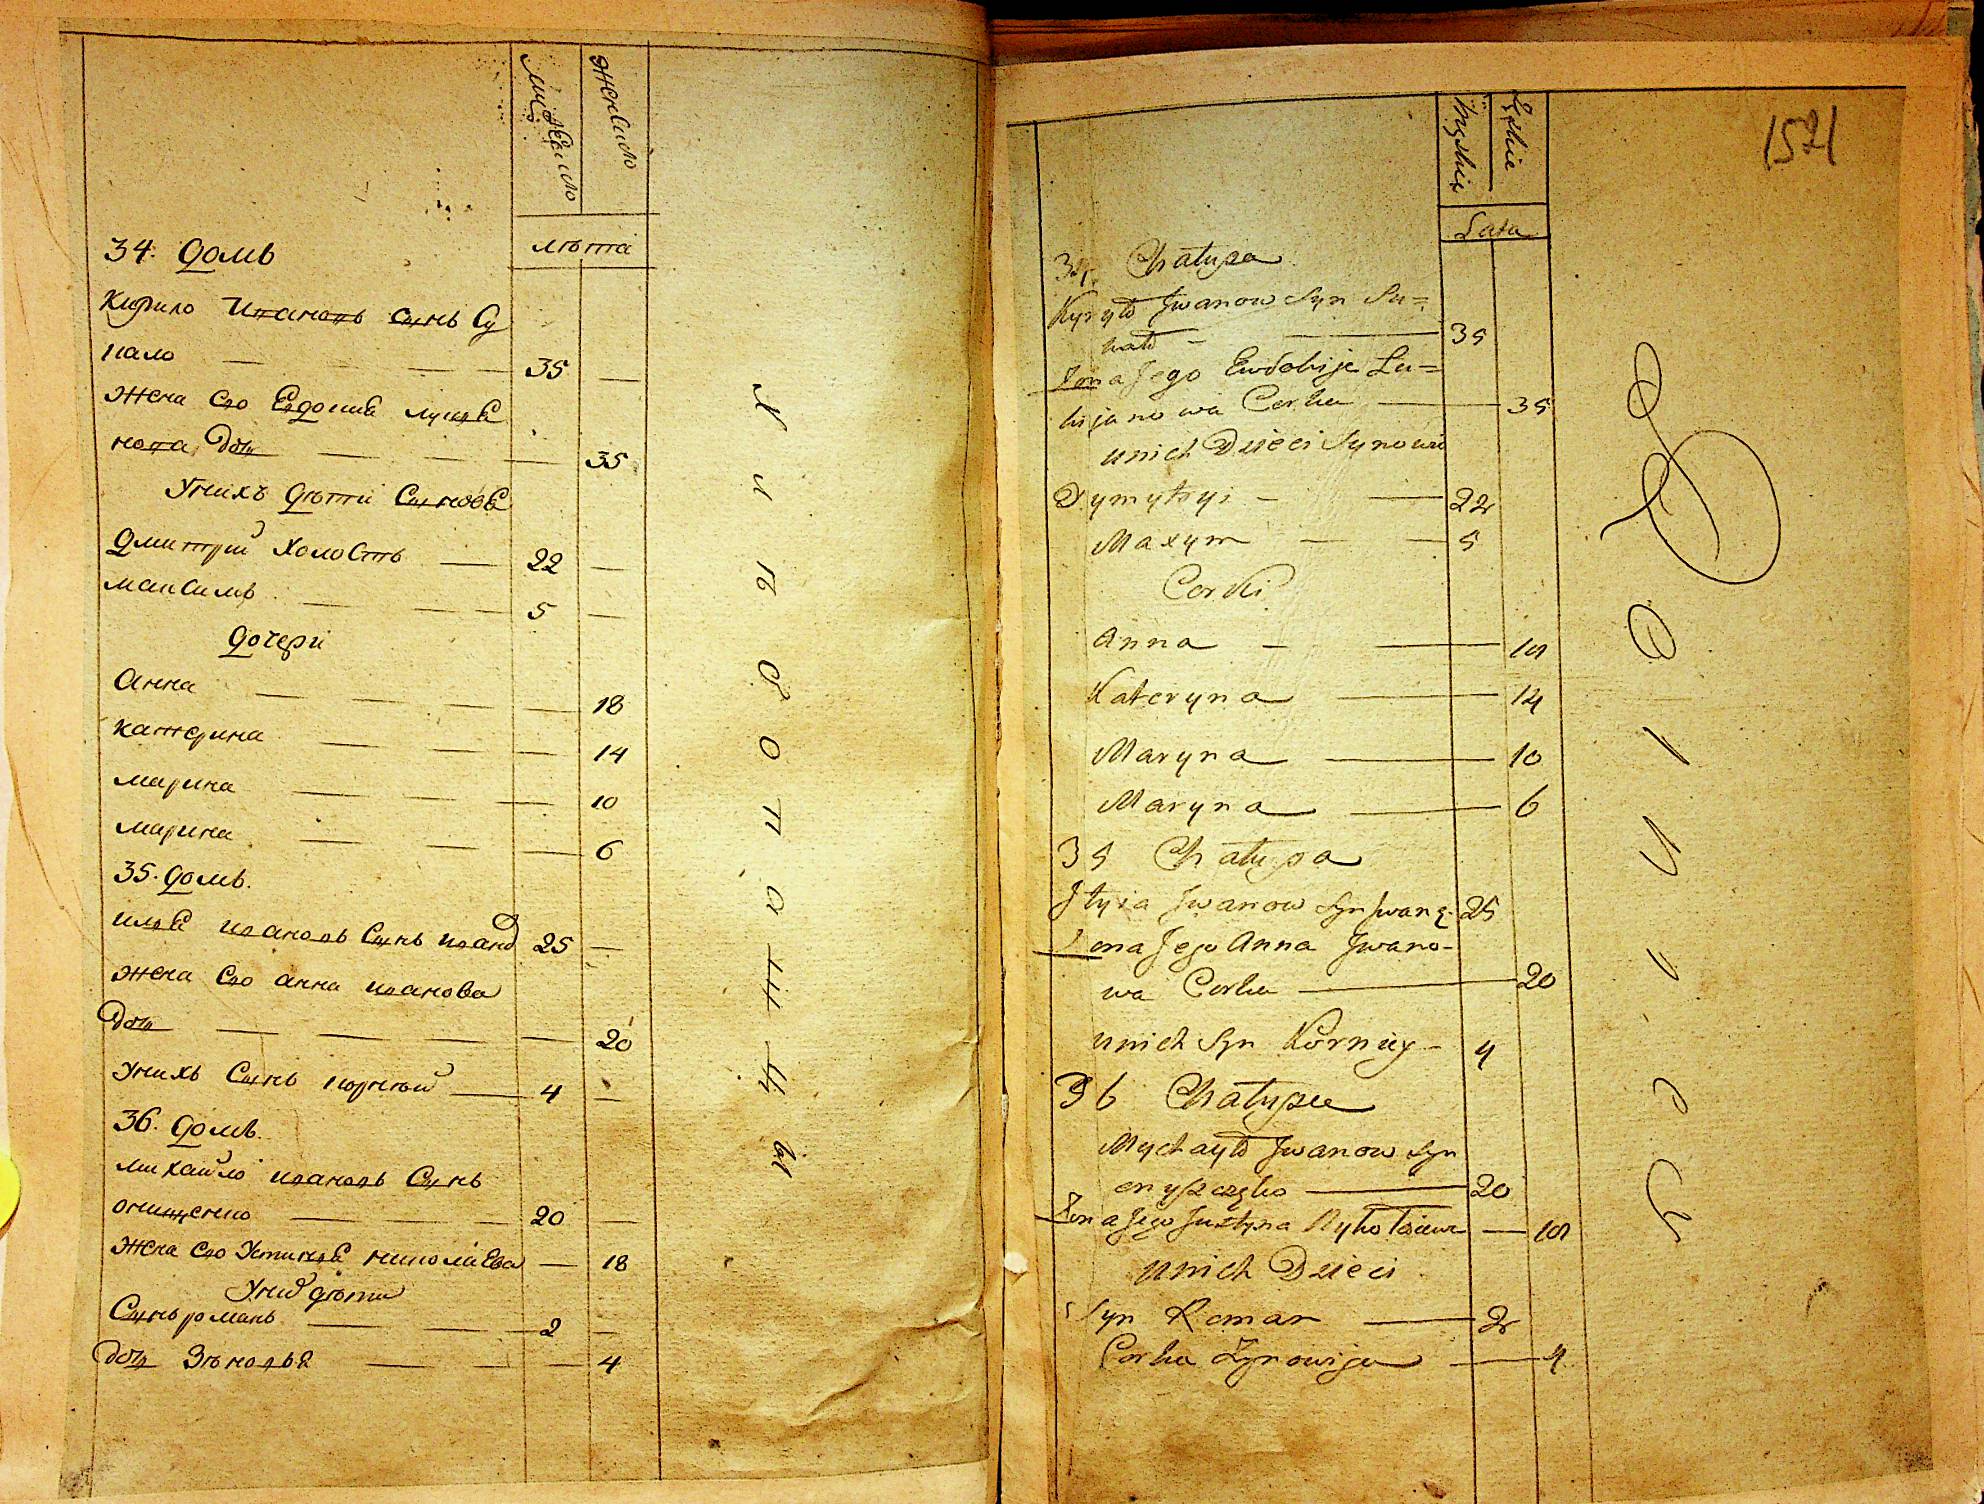 мужеско
женско
лѣта
34. домъ
Кирило Ивановъ сынъ Су
пало 35
жена его Евдокия Лукия
нова дочь 35
У нихъ дѣти Сыновя
Дмитрий холостъ 22
Максимъ 5
дочери
Анна 18
Катерина 14
Марина 10
Марина 6
35. домъ.
Илья Ивановъ Сынъ 25
жена его Анна Иванова
дочь 20
У нихъ Сынъ Корнѣй 4
36. домъ.
Михайло Ивановъ Сынъ
Онищенко 20
жена его Устинья Николаева 18
У них дѣти
Сынъ Романъ 2
дочь Зѣновья 4
Х л ѣ б о п а ш ц ы
1521
Męskie
Żeńskie
Lata
34. Chałupa
Kyryło Jwanow Syn Su=
pało 35
Żona Jego Ewdokija Lu=
kijanowa Corka 35
u nich Dzieci Synowie
Dymytryi 22
Maxym 5
Corki
Anna 18
Kateryna 14
Maryna 10
Maryna 6
35 Chałupa
Jłyia Jwanow Syn 25
Żona Jego Anna Jwano-
wa Corka 20
u nich Syn Korniey 4
36 Chałupa
Mychayło Jwanow Syn
Onyszczęko 20
Żona Jego Justyna Nykołaiewa 18
u nich Dzieci
Syn Roman 2
Corka Zynowija 4
R o l n i c y